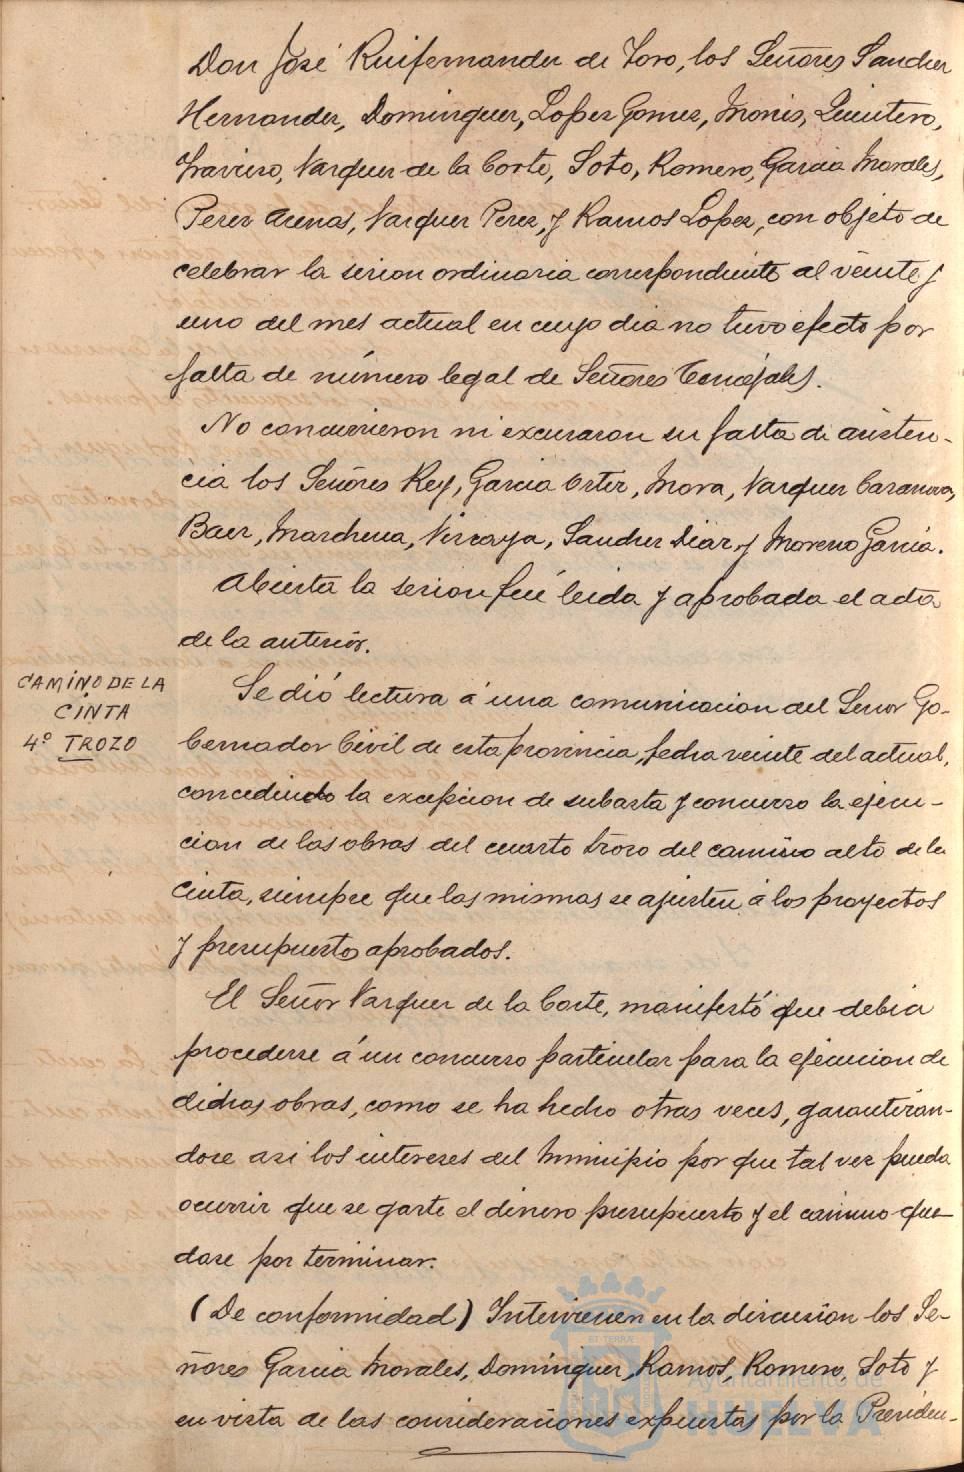 Don José Ruifernandez de Toro, los Señores Sanchez
Hernandez, Dominguez, Lopez Gomez, Monis, Quintero,
Travieso, Vazquez de la Corte, Soto, Romero, Garcia Morales,
Perez Arenas, Vazquez Perez, y Ramos Lopez, con objeto de
celebrar la sesion ordinaria correspondiente al veinte y
uno del mes actual en cuyo dia no tuvo efecto por
falta de número legal de Señores Concejales.
No concurrieron ni excusaron su falta de asisten-
cia los Señores Rey, Garcia Ortiz, Mora, Vazquez Casanova,
Baez, Marchena, Vizcaya, Sanchez Diaz y Moreno Garcia.
Abierta la sesion fué leida y aprobada el acta
de la anterior.
CAMINO DE LA
CINTA
4º TROZO
Se dió lectura á una comunicacion del Señor Go-
bernador Civil de esta provincia, fecha veinte del actual,
concediendo la excepcion de subasta y concurso la ejecu-
cion de las obras del cuarto trozo del camino alto de la
Cinta, siempre que las mismas se ajusten á los proyectos
y presupuesto aprobados.
El Señor Vazquez de la Corte, manifestó que debia
procederse á un concurso particular para la ejecucion de
dichas obras, como se ha hecho otras veces, garantizan-
dose asi los intereses del Municipio por que tal vez pueda
ocurrir que se gaste el dinero presupuesto y el camino que-
dase por terminar.
(De conformidad) Intervienen en la discusión los Se-
ñores Garcia Morales, Dominguez, Ramos, Romero, Soto y
en vista de las consideraciones expuestas por la Presiden-
ET TERRÆ
Ayuntamiento de
HUELVA